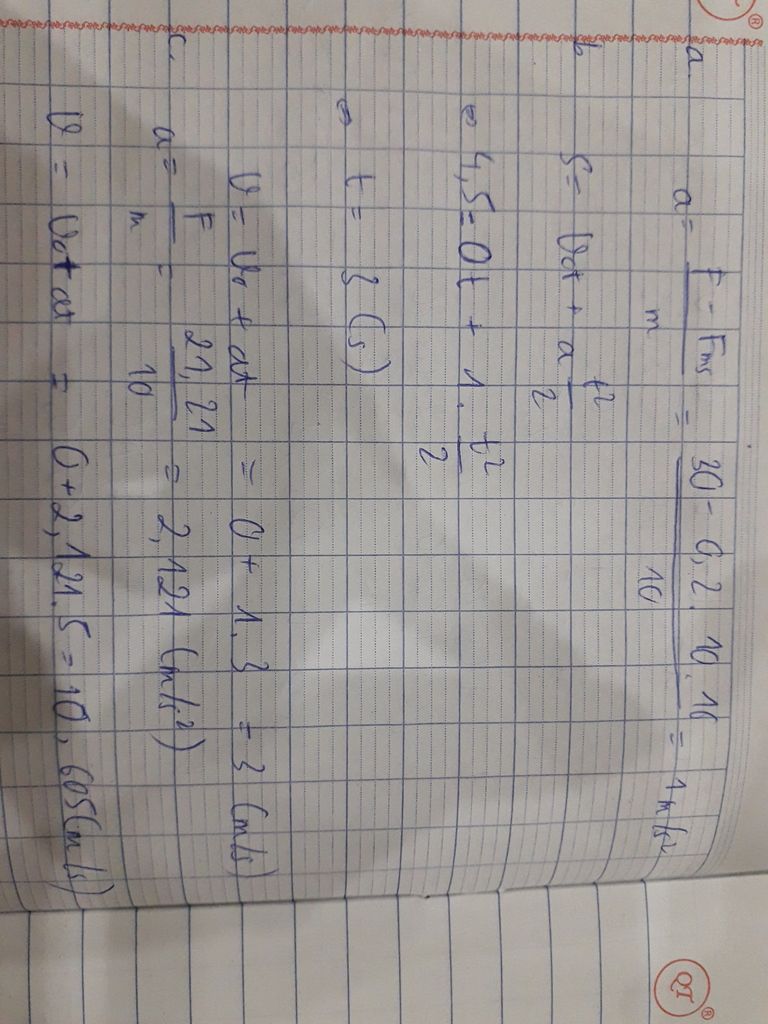 a. a = (F - Fms)/m = (30 - 0,2. 10. 10)/10 = 1 m/s²
b S = Vot + a t²/2
⇔ 4,5 = 0t + 1. t²/2
⇔ t = 3 (s)
V = Vo + at = 0 + 1.3 = 3 (m/s)
c. a = F/m = 21,21/10 = 2,121 (m/s²)
V = Vo + at = 0 + 2,121.5 = 10,605 (m/s)
QI ®
®